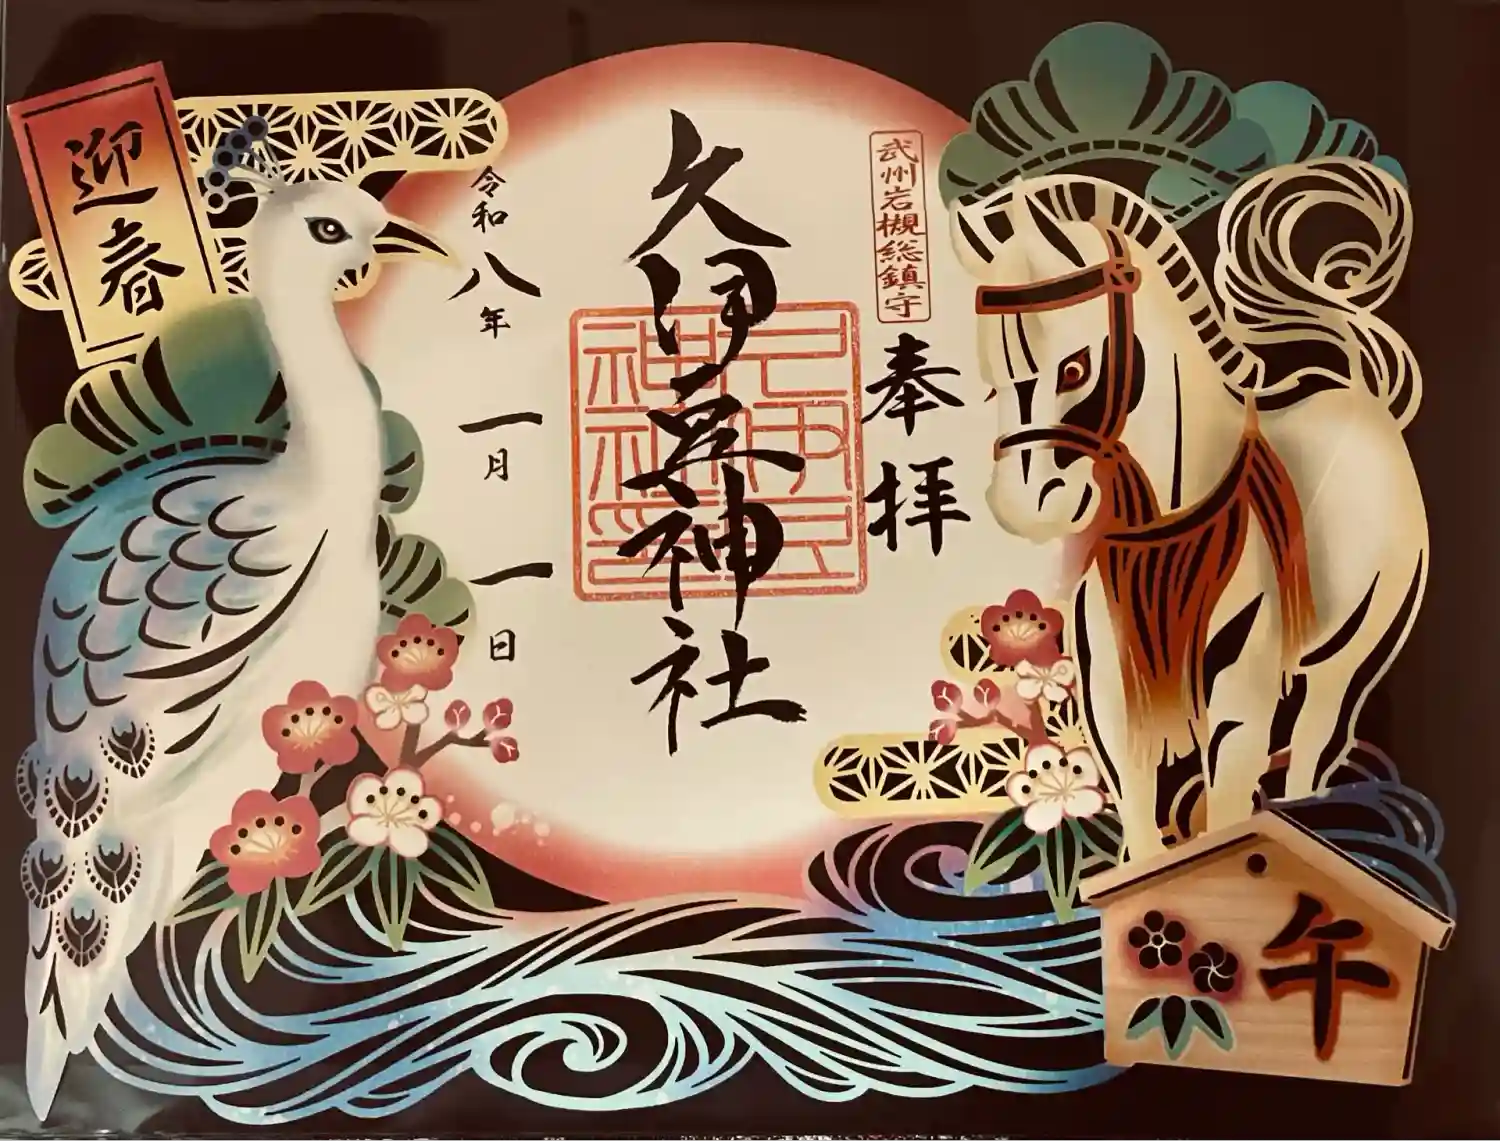 武州岩槻総鎮守
奉拝
久伊豆神社
久伊豆
神社印
令和八年一月一日
迎春
午